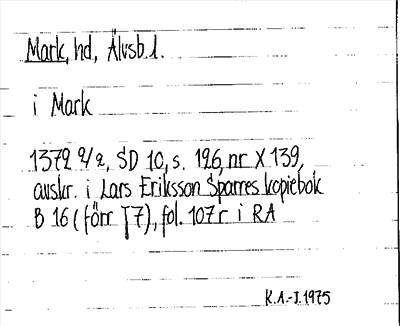 Mark, hd, Älvsb. l.
i Mark
1379 9/2, SD 10, s. 196, nr X 139,
avskr. i Lars Eriksson Sparres kopiebok
B 16 (förr T7), fol. 107 r i RA
K.A.-I. 1975